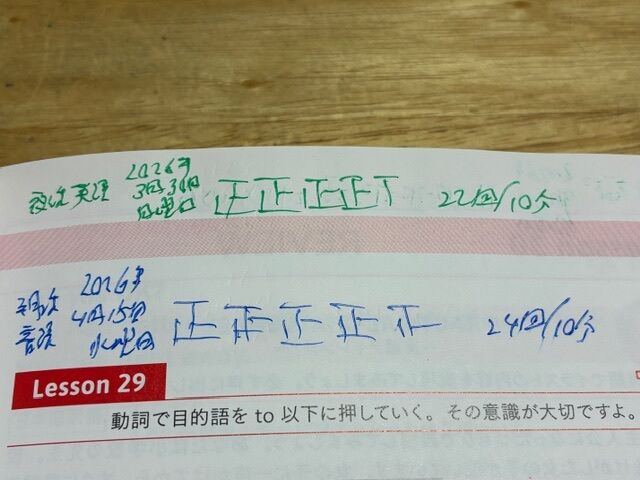 2026年
3月30日
月曜日
正正正正丅 22回/10分
2026年
4月15日
水曜日
正正正正正 24回/10分
Lesson 29
動詞で目的語を to 以下に押していく。その意識が大切ですよ。